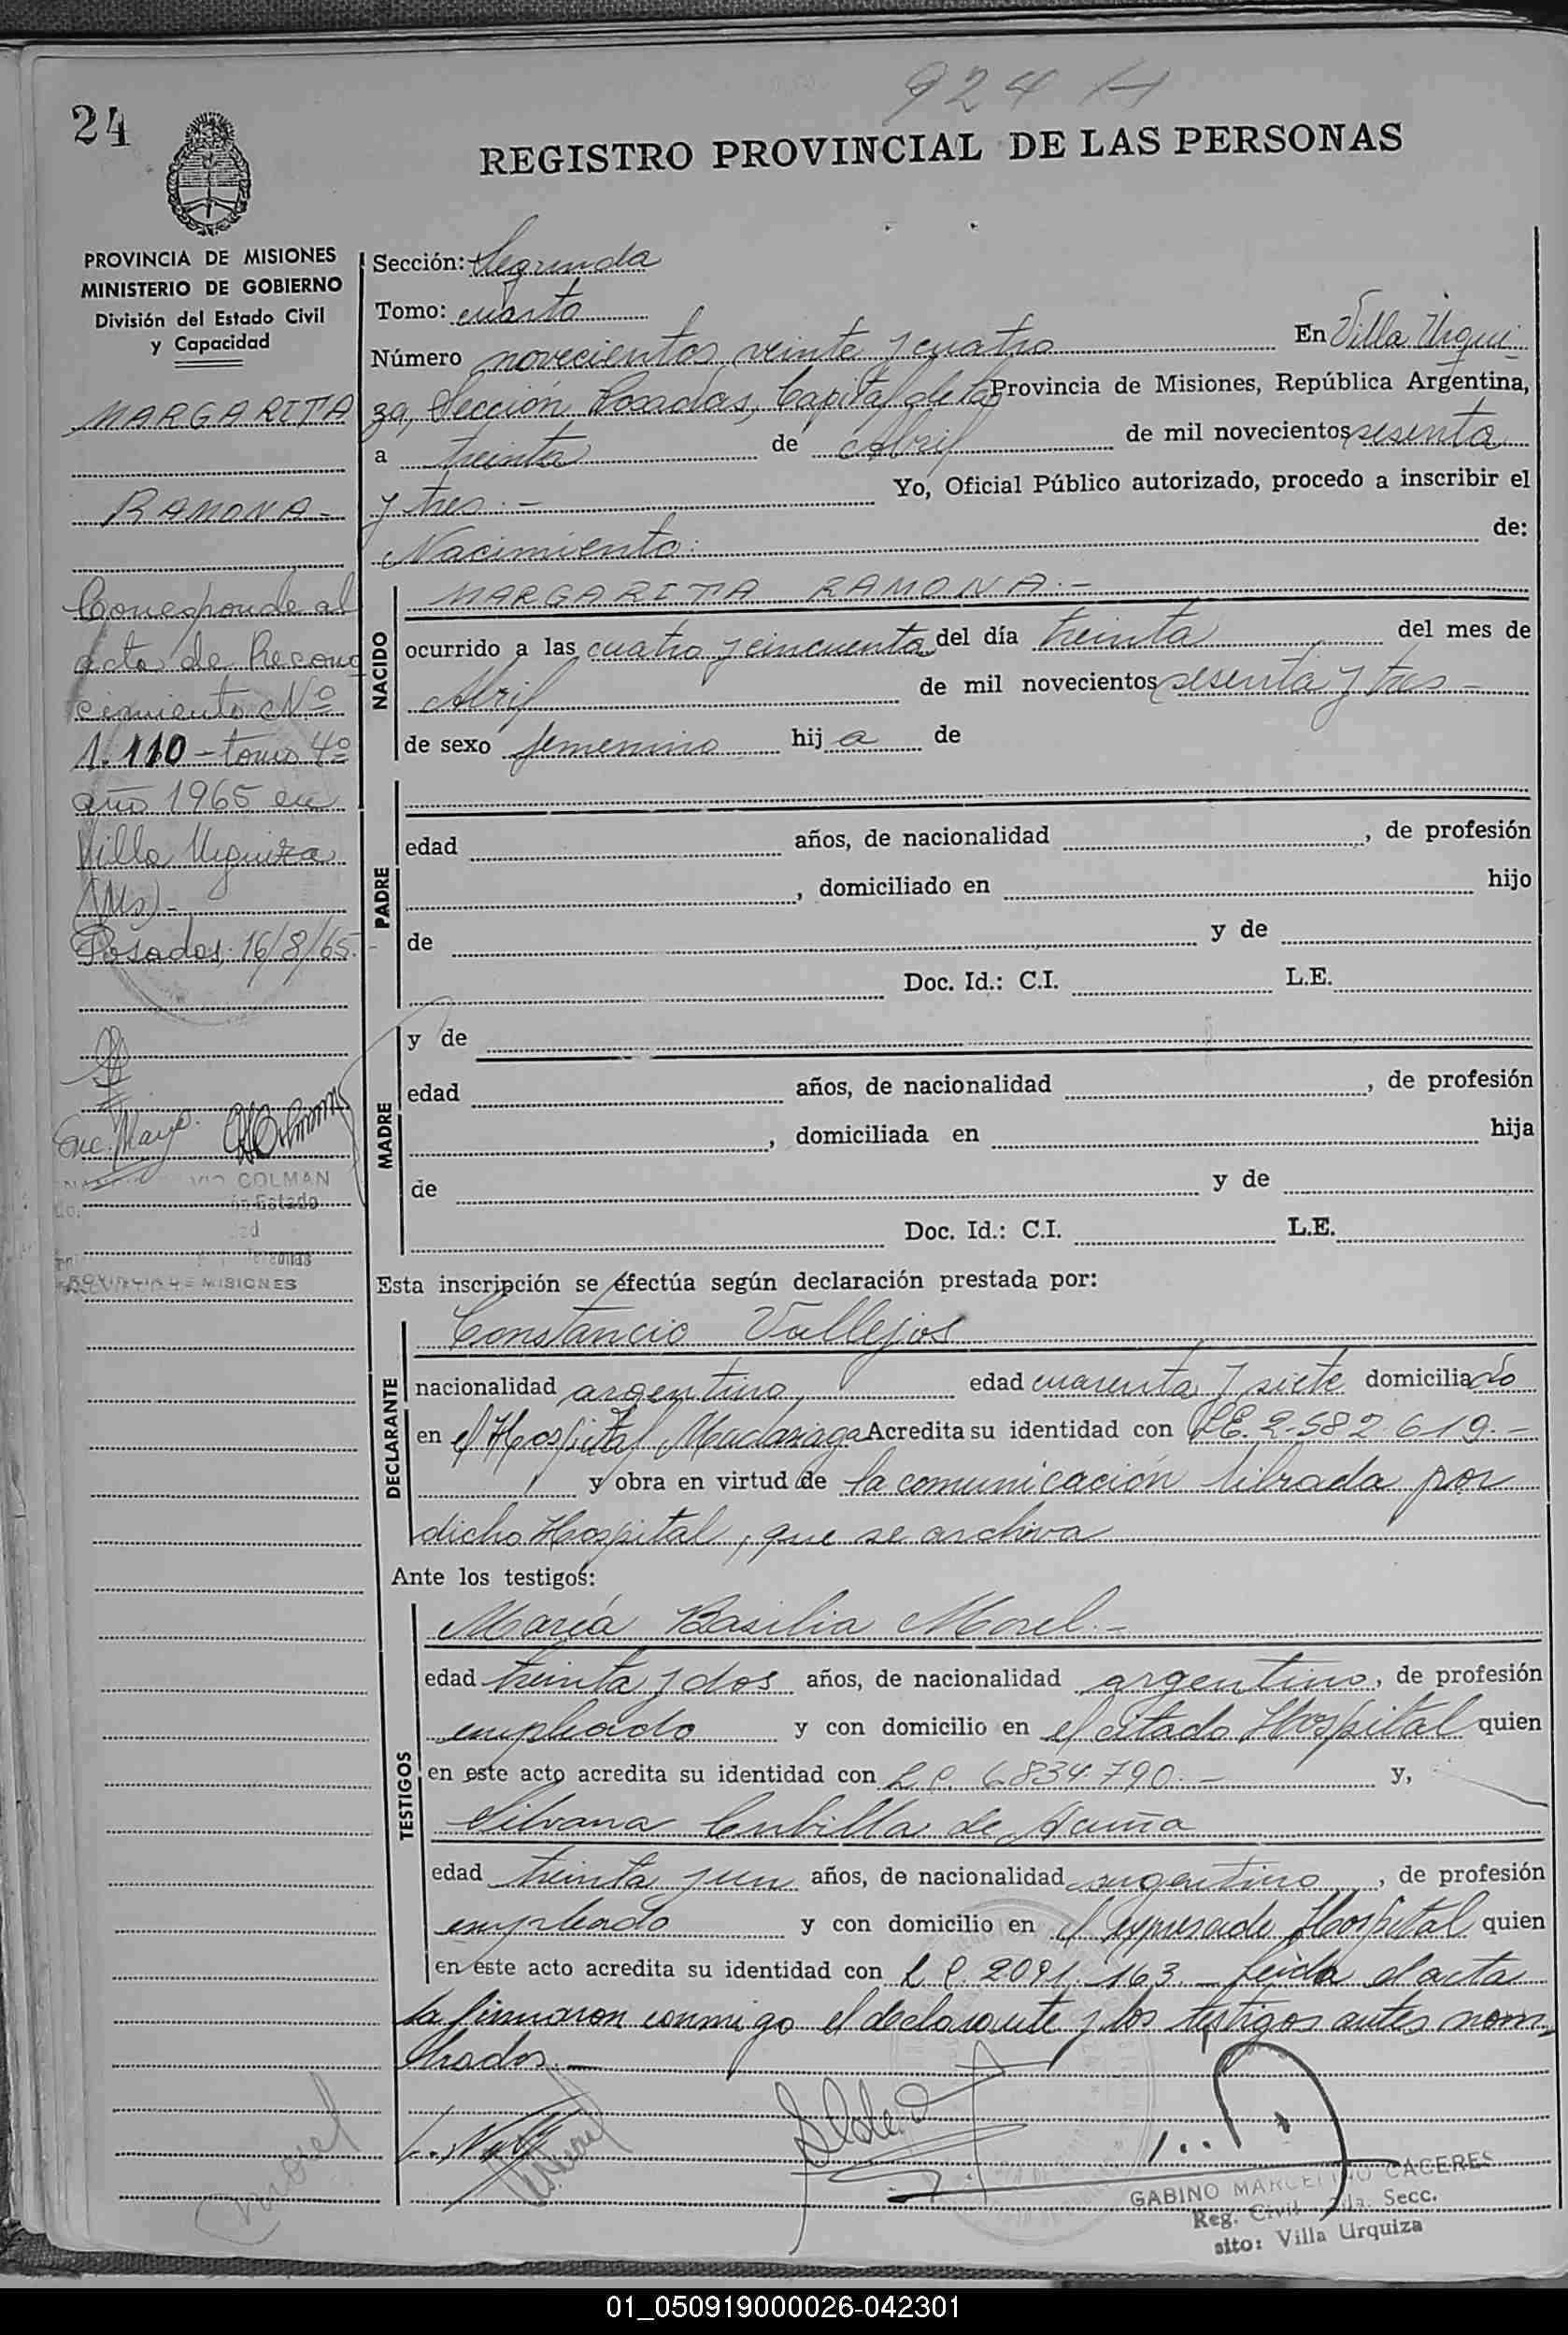 924 H
24
REGISTRO PROVINCIAL DE LAS PERSONAS
PROVINCIA DE MISIONES
MINISTERIO DE GOBIERNO
División del Estado Civil
y Capacidad
MARGARITA
RAMONA -
Corresponde al
acta de Recono
cimiento Nº
1.110 - tomo 4º
año 1965 en
Villa Urquiza
(Ms) -
Posadas, 16/8/65.
Enc. Mayo.
COLMAN
Estado
PROVINCIA DE MISIONES
Sección: Segunda
Tomo: cuarto
Número novecientos veinte y cuatro En Villa Urqui-
za, Sección Posadas, Capital de la Provincia de Misiones, República Argentina,
a treinta de Abril de mil novecientos sesenta
y tres. - Yo, Oficial Público autorizado, procedo a inscribir el
Nacimiento: de:
NACIDO
MARGARITA RAMONA. -
ocurrido a las cuatro y cincuenta del día treinta del mes de
Abril de mil novecientos sesenta y tres -
de sexo femenino hij a de
PADRE
edad años, de nacionalidad , de profesión
, domiciliado en hijo
de y de
Doc. Id.: C.I. L.E.
MADRE
y de
edad años, de nacionalidad , de profesión
, domiciliada en hija
de y de
Doc. Id.: C.I. L.E.
Esta inscripción se efectúa según declaración prestada por:
DECLARANTE
Constancio Vallejos
nacionalidad argentino, edad cuarenta y siete domiciliado
en el Hospital Madariaga Acredita su identidad con L.E. 2.582.619. -
y obra en virtud de la comunicación librada por
dicho Hospital, que se archiva
Ante los testigos:
TESTIGOS
María Basilia Morel. -
edad treinta y dos años, de nacionalidad argentino, de profesión
empleado y con domicilio en el citado Hospital quien
en este acto acredita su identidad con L.C. 6.834.790. - y,
Silvana Cubilla de Acuña
edad treinta y un años, de nacionalidad argentino, de profesión
empleado y con domicilio en el expresado Hospital quien
en este acto acredita su identidad con L.C. 2091.163. - Leída el acta
la firmaron conmigo el declarante y los testigos antes nom-
brados. -
Morel
GABINO MARCELINO CACERES
Reg. Civil 2da. Secc.
sito: Villa Urquiza
01_050919000026-042301